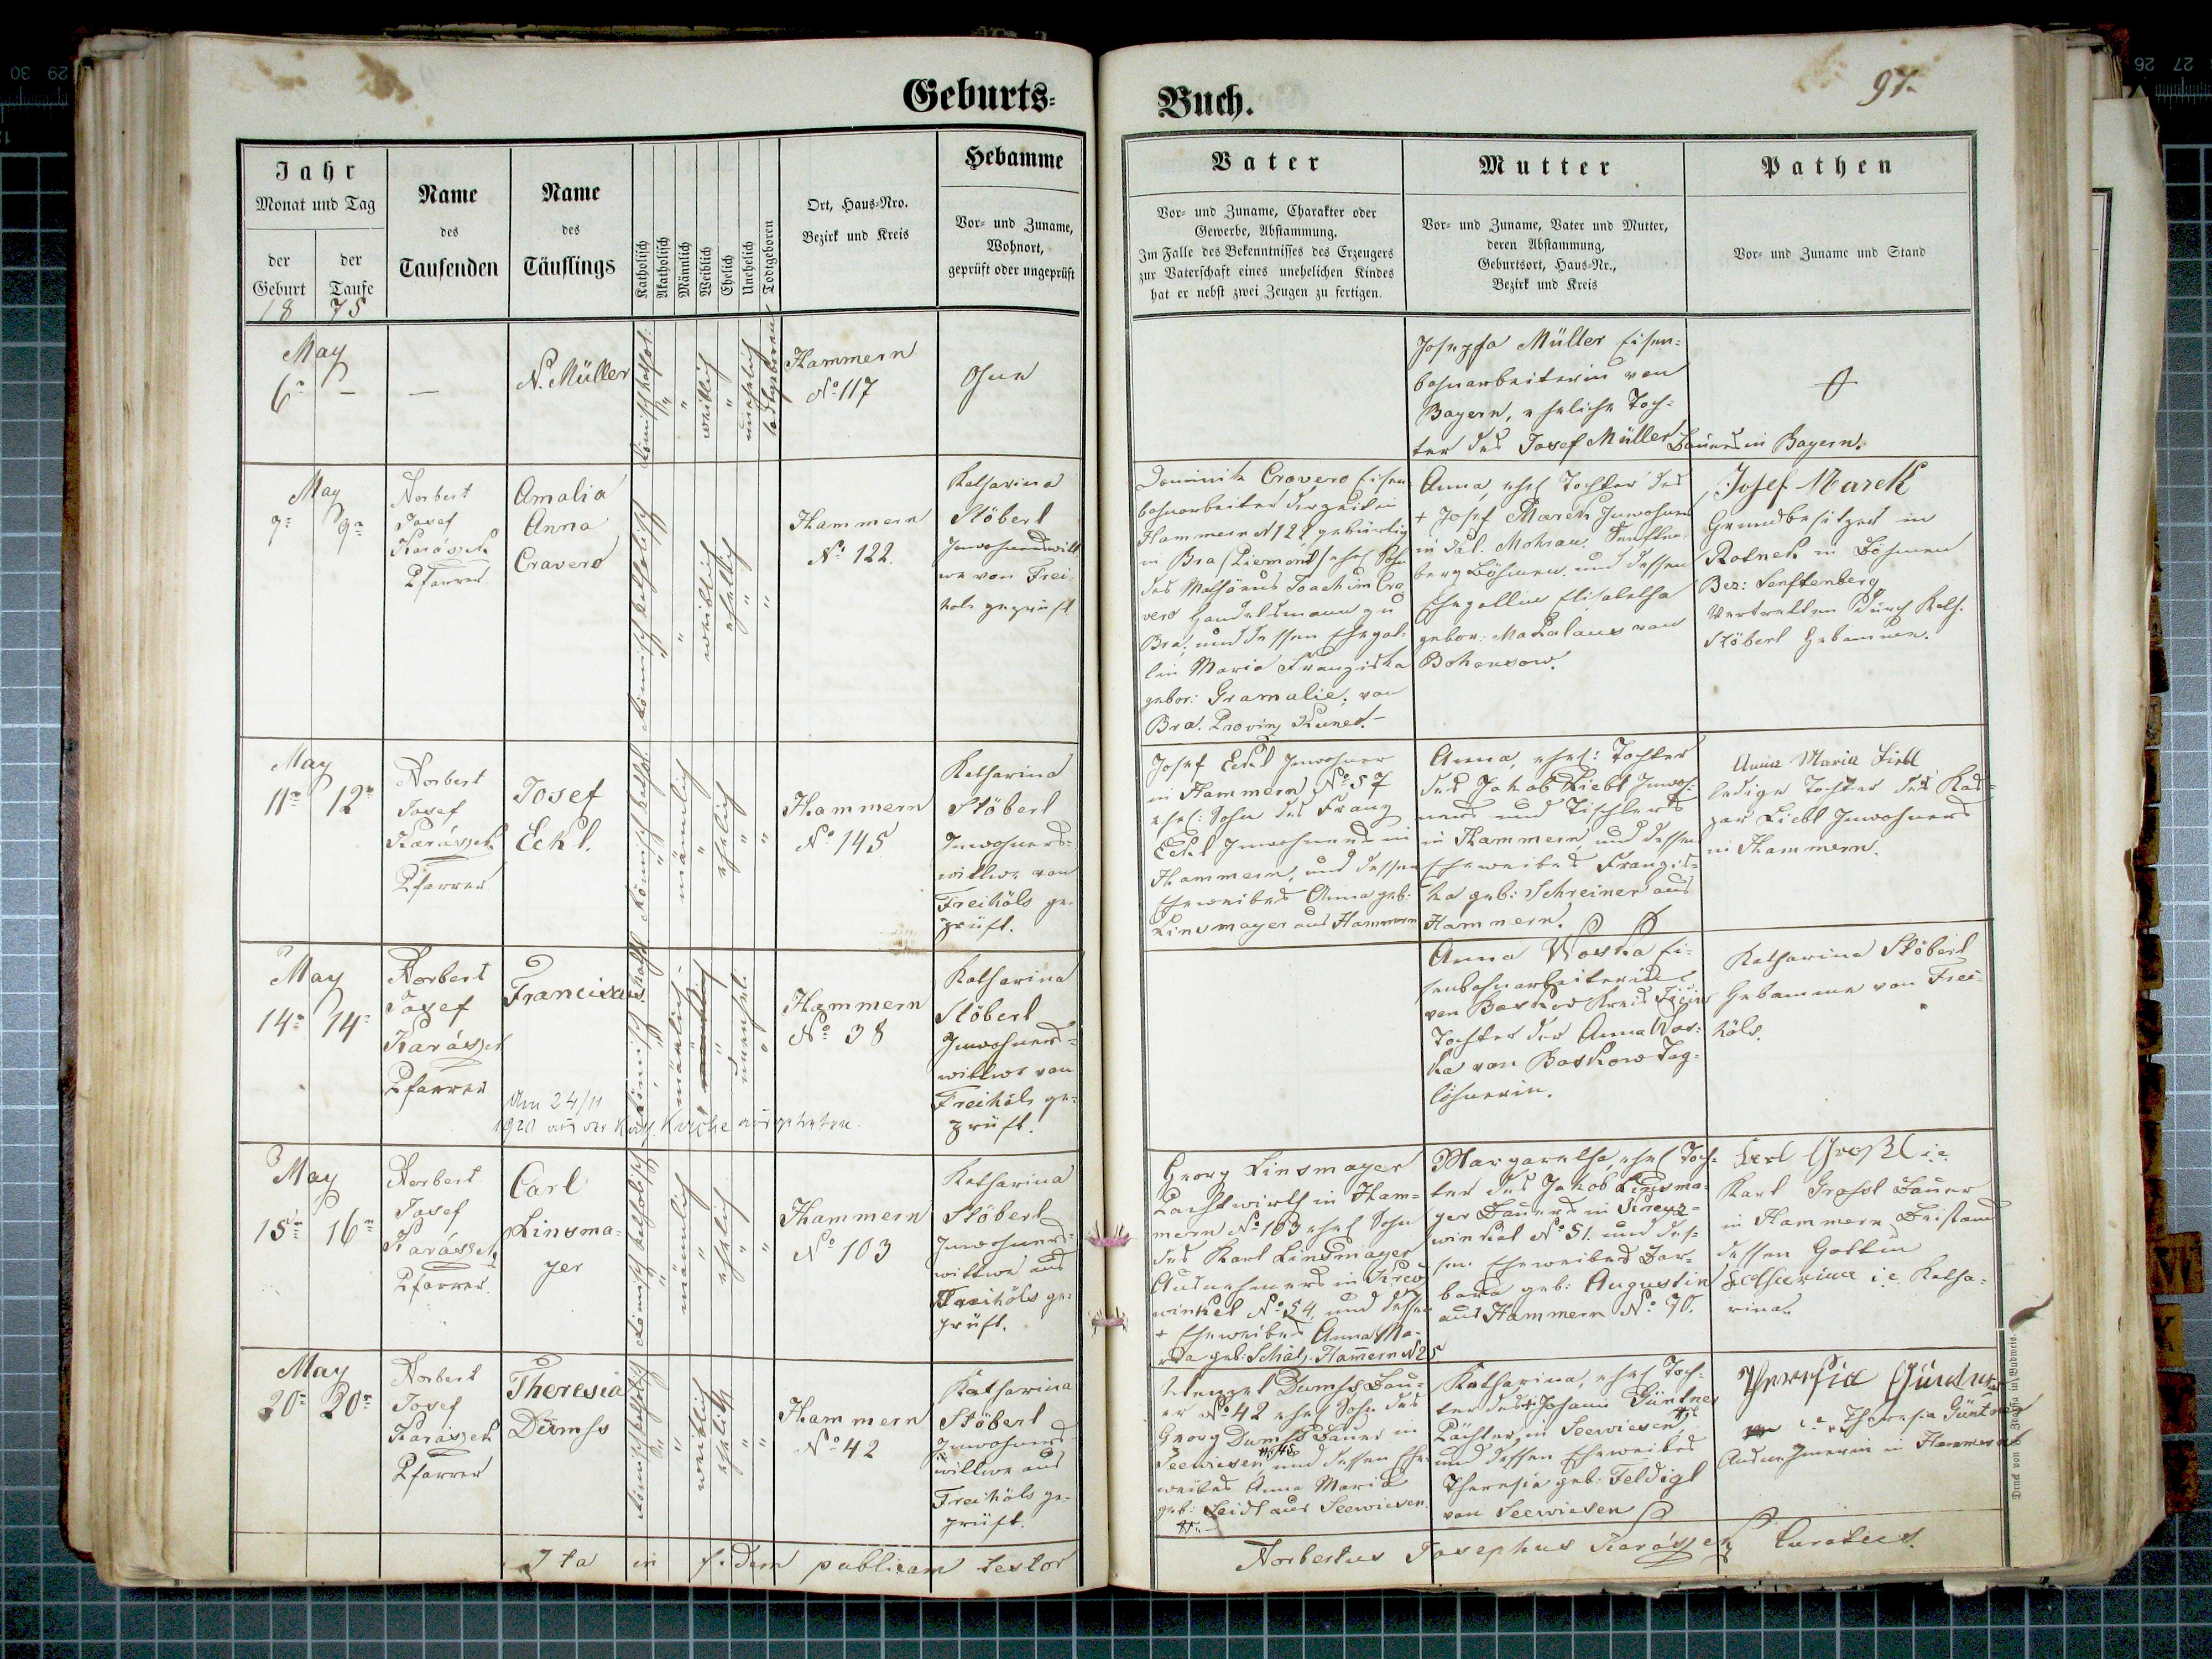 Geburts-
Buch.
97.
Jahr
Monat und Tag
der Geburt
der Taufe
18 75
Name
des
Taufenden
Name
des
Täuflings
Katholisch
Akatholisch
Männlich
Weiblich
Ehelich
Unehelich
Todtgeboren
Ort, Haus-Nro.
Bezirk und Kreis
Hebamme
Vor- und Zuname,
Wohnort,
geprüft oder ungeprüft
Vater
Vor- und Zuname, Charakter oder
Gewerbe, Abstammung.
Im Falle des Bekenntnisses des Erzeugers
zur Vaterschaft eines unehelichen Kindes
hat er nebst zwei Zeugen zu fertigen.
Mutter
Vor- und Zuname, Vater und Mutter,
deren Abstammung,
Geburtsort, Haus-Nr.,
Bezirk und Kreis
Pathen
Vor- und Zuname und Stand
May
6. —
—
N. Müller
Römisch kathol:
weiblich
unehelich
todtgeboren
Hammern
No 117
Ohne
Josepha Müller Eisen-
bahnarbeiterin von
Bayern, eheliche Toch-
ter des Josef Müller Bauers in Bayern.
May
9.
Norbert
Josef
Karásek
Pfarrer
Amalia
Anna
Cravero
Römisch katholisch
weiblich
ehelich
Hammern
No 122.
Katharina
Stöberl
Inwohnerswitt
we von Frei
höls geprüft
Dominik Cravero Eisen
bahnarbeiter derzeit in
Hammern N 122 gebürtig
in Bra (Piemont) ehel Sohn
des Mathäus Joachim Cra
vero Handelsmann zu
Bra, und dessen Ehegat-
tin Maria Franziska
gebor: Gramalie, von
Bra. Provinz
Anna, ehel Tochter des
+ Josef Marek Inwohner
in Mohrau, Senften-
berg Böhmen. und dessen
Ehegattin Elisabetha
gebor:
Josef Marek
Grundbesitzer in
Rotnek in Böhmen
Bez: Senftenberg
Vertretten durch Kath.
Stöberl Hebamme.
May
11. 12.
Norbert
Josef
Karásek
Pfarrer
Josef
Eckl.
Römisch kathol.
männlich
ehelich
Hammern
No 145
Katharina
Stöberl
Inwohners-
wittwe von
Freihöls ge-
prüft.
Josef Eckl Inwohner
in Hammern No 57
ehel: Sohn des Franz
Eckl Inwohners in
Hammern, und dessen
Eheweibes Anna geb:
Linsmayer aus Hammern
Anna, ehel: Tochter
des Jakob Liebl Inwoh-
ners und Tischlers
in Hammern, und dessen
Eheweibes Franzis-
ka geb: Schreiner aus
Hammern.
Anna Maria Liebl
ledige Tochter des Kas-
par Liebl Inwohners
in Hammern.
May
14. 14.
Norbert
Josef
Karásek
Pfarrer
Franciscus
Am 24/11
1920 aus der Kath. Kirche ausgetreten.
männlich
unehel.
Hammern
No 38
Katharina
Stöberl
Inwohners-
wittwe von
Freihöls ge-
prüft.
Anna Woska Ei-
senbahnarbeiterin
von Baskow Kreis
Tochter der Anna Wos-
ka von Baskow Tag-
löhnerin.
Katharina Stöberl
Hebamme von Frei-
höls.
May
15. 16.
Norbert
Josef
Karásek
Pfarrer
Carl
Linsma-
yer
Römisch katholisch
männlich
ehelich
Hammern
No 103
Katharina
Stöberl
Inwohners-
wittwe aus
Freihöls ge-
prüft.
Georg Linsmayer
Pachtwirth in Ham-
mern No 103 ehel Sohn
des Karl Linsmayer
Ausnehmers in Kreuz
winkel No 54, und dessen
+ Eheweibes Anna Ma-
ria geb: Schätz. Hammern N 25
Margaretha, ehel Toch-
ter des Jakob Linsma-
yer Bauers in Kreuz-
winkel No 51. und des-
sen Eheweibes Bar-
bara geb: Augustin
aus Hammern No 70.
Karl Großl i.e.
Karl Grossl Bauer
in Hammern Beistand
dessen Gattin
Katharina i.e. Katha-
rina.
May
20. 20.
Norbert
Josef
Karásek
Pfarrer
Theresia
Dumhs
Römisch katholisch
weiblich
ehelich
Hammern
No 42
Katharina
Stöberl
Inwohners-
wittwe aus
Freihöls ge-
prüft.
Wenzel Dumhs Bau-
er No 42 ehel Sohn des
Georg Dumhs Bauer in
Seewiesen No 45 und dessen Ehe-
weibes Anna Maria
geb: Seidl aus Seewiesen.
Katharina, ehel Toch-
ter des Johann Güntner
Pächter in Seewiesen
und dessen Eheweibes
Theresia geb: Feldigl
von Seewiesen
Theresia Güntner
i.e. Theresia Güntner
Ausnehmerin in Hammern
Ita in fidem publicam testor
Norbertus Josephus Karásek Curatus.